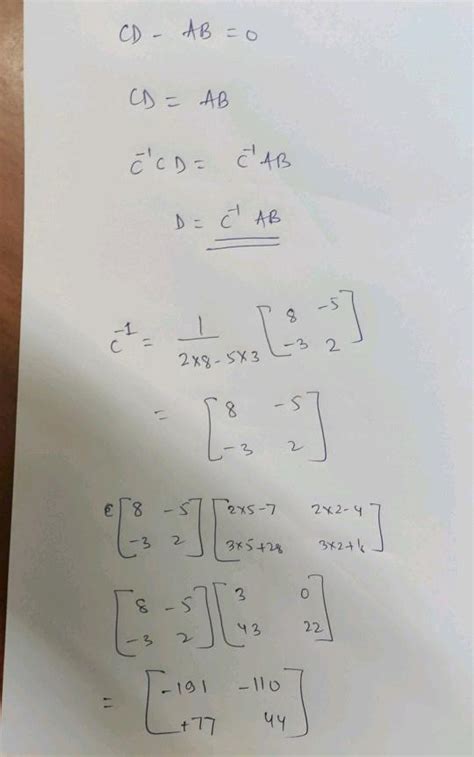 CD - AB = 0
CD = AB
C⁻¹ C D = C⁻¹ AB
D = C⁻¹ AB
C⁻¹ = 1 / (2×8 - 5×3) [8 -5; -3 2]
= [8 -5; -3 2]
[8 -5; -3 2] [2×5-7 2×2-4; 3×5+28 3×2+]
[8 -5; -3 2] [3 0; 43 22]
= [-191 -110; +77 44]